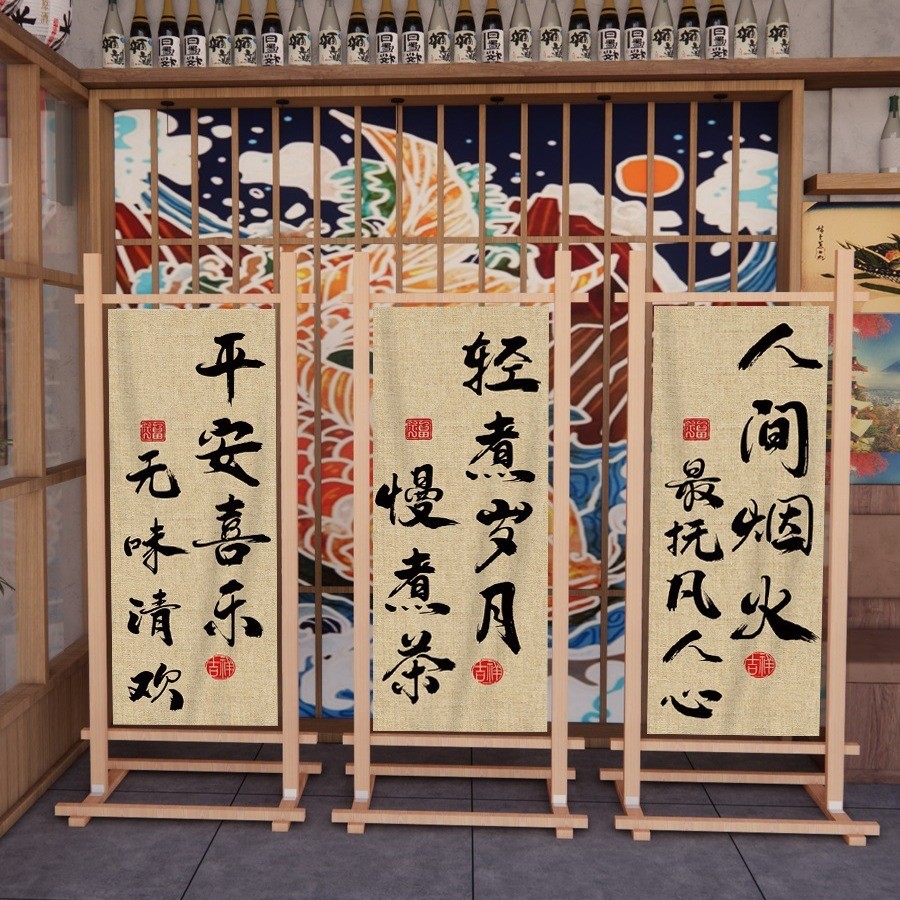 平安喜乐
吉祥
无味清欢
轻煮岁月
吉祥
慢煮茶
人间烟火
吉祥
最抚凡人心